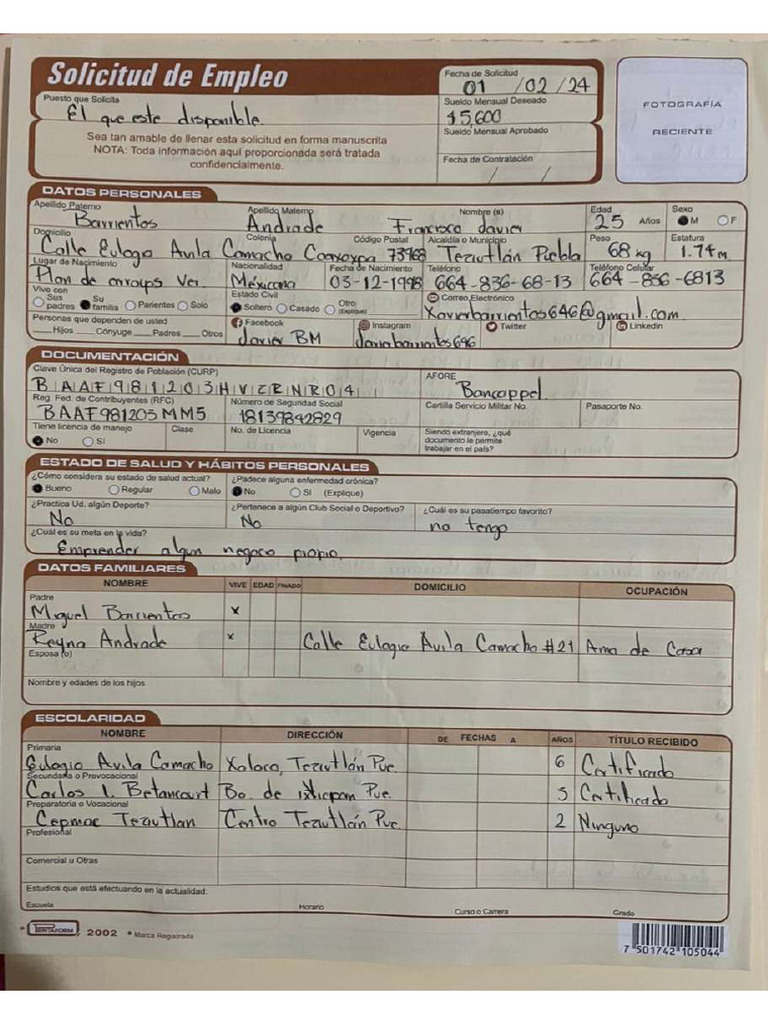 Solicitud de Empleo
Fecha de Solicitud
01 / 02 / 24
Puesto que Solicita
El que este disponible.
Sueldo Mensual Deseado
$5,600
Sea tan amable de llenar esta solicitud en forma manuscrita
NOTA: Toda información aquí proporcionada será tratada
confidencialmente.
Sueldo Mensual Aprobado
Fecha de Contratación
/ /
FOTOGRAFÍA
RECIENTE
DATOS PERSONALES
Apellido Paterno Apellido Materno Nombre (s) Edad Sexo
Barrientos Andrade Francisco Javier 25 Años M F
Domicilio Colonia Código Postal Alcaldía o Municipio Peso Estatura
Calle Eulogio Avila Camacho Coaxoxpa 73968 Teziutlán Puebla 68 kg 1.74 m
Lugar de Nacimiento Nacionalidad Fecha de Nacimiento Teléfono Teléfono Celular
Plan de arroyos Ver. Méxicana 03-12-1998 664-836-68-13 664-836-6813
Vive con Estado Civil Correo Electrónico
Sus padres Su familia Parientes Solo Soltero Casado Otro (Explique) Xavierbarrientos646@gmail.com
Personas que dependen de usted Facebook Instagram Twitter Linkedin
Hijos Cónyuge Padres Otros Javier BM javierbarrientos696
DOCUMENTACIÓN
Clave Única del Registro de Población (CURP) AFORE
BAAF981203HVZRNR04 Bancoppel
Reg. Fed. de Contribuyentes (RFC) Número de Seguridad Social Cartilla Servicio Militar No. Pasaporte No.
BAAF981203MM5 18139842829
Tiene licencia de manejo Clase No. de Licencia Vigencia Siendo extranjero, ¿qué
No Sí documento le permite
trabajar en el país?
ESTADO DE SALUD Y HÁBITOS PERSONALES
¿Cómo considera su estado de salud actual? ¿Padece alguna enfermedad crónica?
Bueno Regular Malo No Sí (Explique)
¿Practica Ud. algún Deporte? ¿Pertenece a algún Club Social o Deportivo? ¿Cuál es su pasatiempo favorito?
No No no tengo
¿Cuál es su meta en la vida?
Emprender algun negocio propio.
DATOS FAMILIARES
NOMBRE VIVE EDAD FINADO DOMICILIO OCUPACIÓN
Padre
Miguel Barrientos x
Madre
Reyna Andrade x Calle Eulogio Avila Camacho #21 Ama de Casa
Esposa (o)
Nombre y edades de los hijos
ESCOLARIDAD
NOMBRE DIRECCIÓN DE FECHAS A AÑOS TÍTULO RECIBIDO
Primaria
Eulogio Avila Camacho Xoloco, Teziutlán Pue. 6 Certificado
Secundaria o Prevocacional
Carlos I. Betancourt Bo. de Ixticpan Pue. 3 Certificado
Preparatoria o Vocacional
Cepmac Teziutlan Centro Teziutlán Pue. 2 Ninguno
Profesional
Comercial u Otras
Estudios que está efectuando en la actualidad:
Escuela Horario Curso o Carrera Grado
PRINTAFORM 2002 * Marca Registrada
7 501742 105044